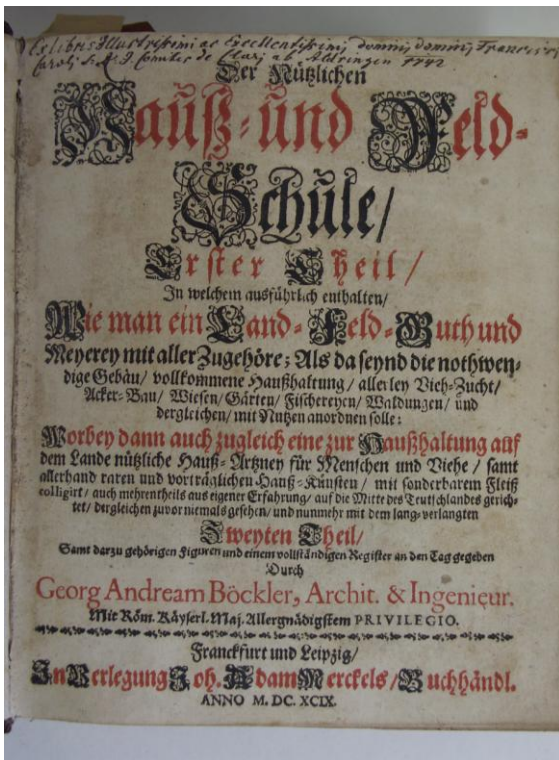 Ex libris Illustrissimi ac Excellentissimi Domini, Domini, Francisci
Caroli S. R. I. Comitis de Clari ab Aldringen 1742
Der Nützlichen
Hauß- und Feld-
Schule/
Erster Theil/
In welchem ausführlich enthalten/
Wie man ein Land- Feld- Guth und
Meyerey mit aller Zugehöre; Als da seynd die nothwen-
dige Gebäu/ vollkommene Haußhaltung/ allerley Vieh-Zucht/
Acker-Bau/ Wiesen/ Gärten/ Fischereyen/ Waldungen/ und
dergleichen/ mit Nutzen anordnen solle:
Worbey dann auch zugleich eine zur Haußhaltung auf
dem Lande nützliche Hauß-Artzney für Menschen und Viehe/ samt
allerhand raren und vorträglichen Hauß-Künsten/ mit sonderbarem Fleiß
colligirt/ auch mehrentheils aus eigener Erfahrung/ auf die Mitte des Teutschlandes gerich-
tet/ dergleichen zuvor niemals gesehen/ und nunmehr mit dem lang-verlangten
Zweyten Theil/
Samt darzu gehörigen Figuren und einem vollständigen Register an den Tag gegeben
Durch
Georg Andream Böckler, Archit. & Ingenieur.
Mit Röm. Käyserl. Maj. Allergnädigstem PRIVILEGIO.
Franckfurt und Leipzig/
In Verlegung Joh. Adam Merckels/ Buchhändl.
ANNO M. DC. XCIX.